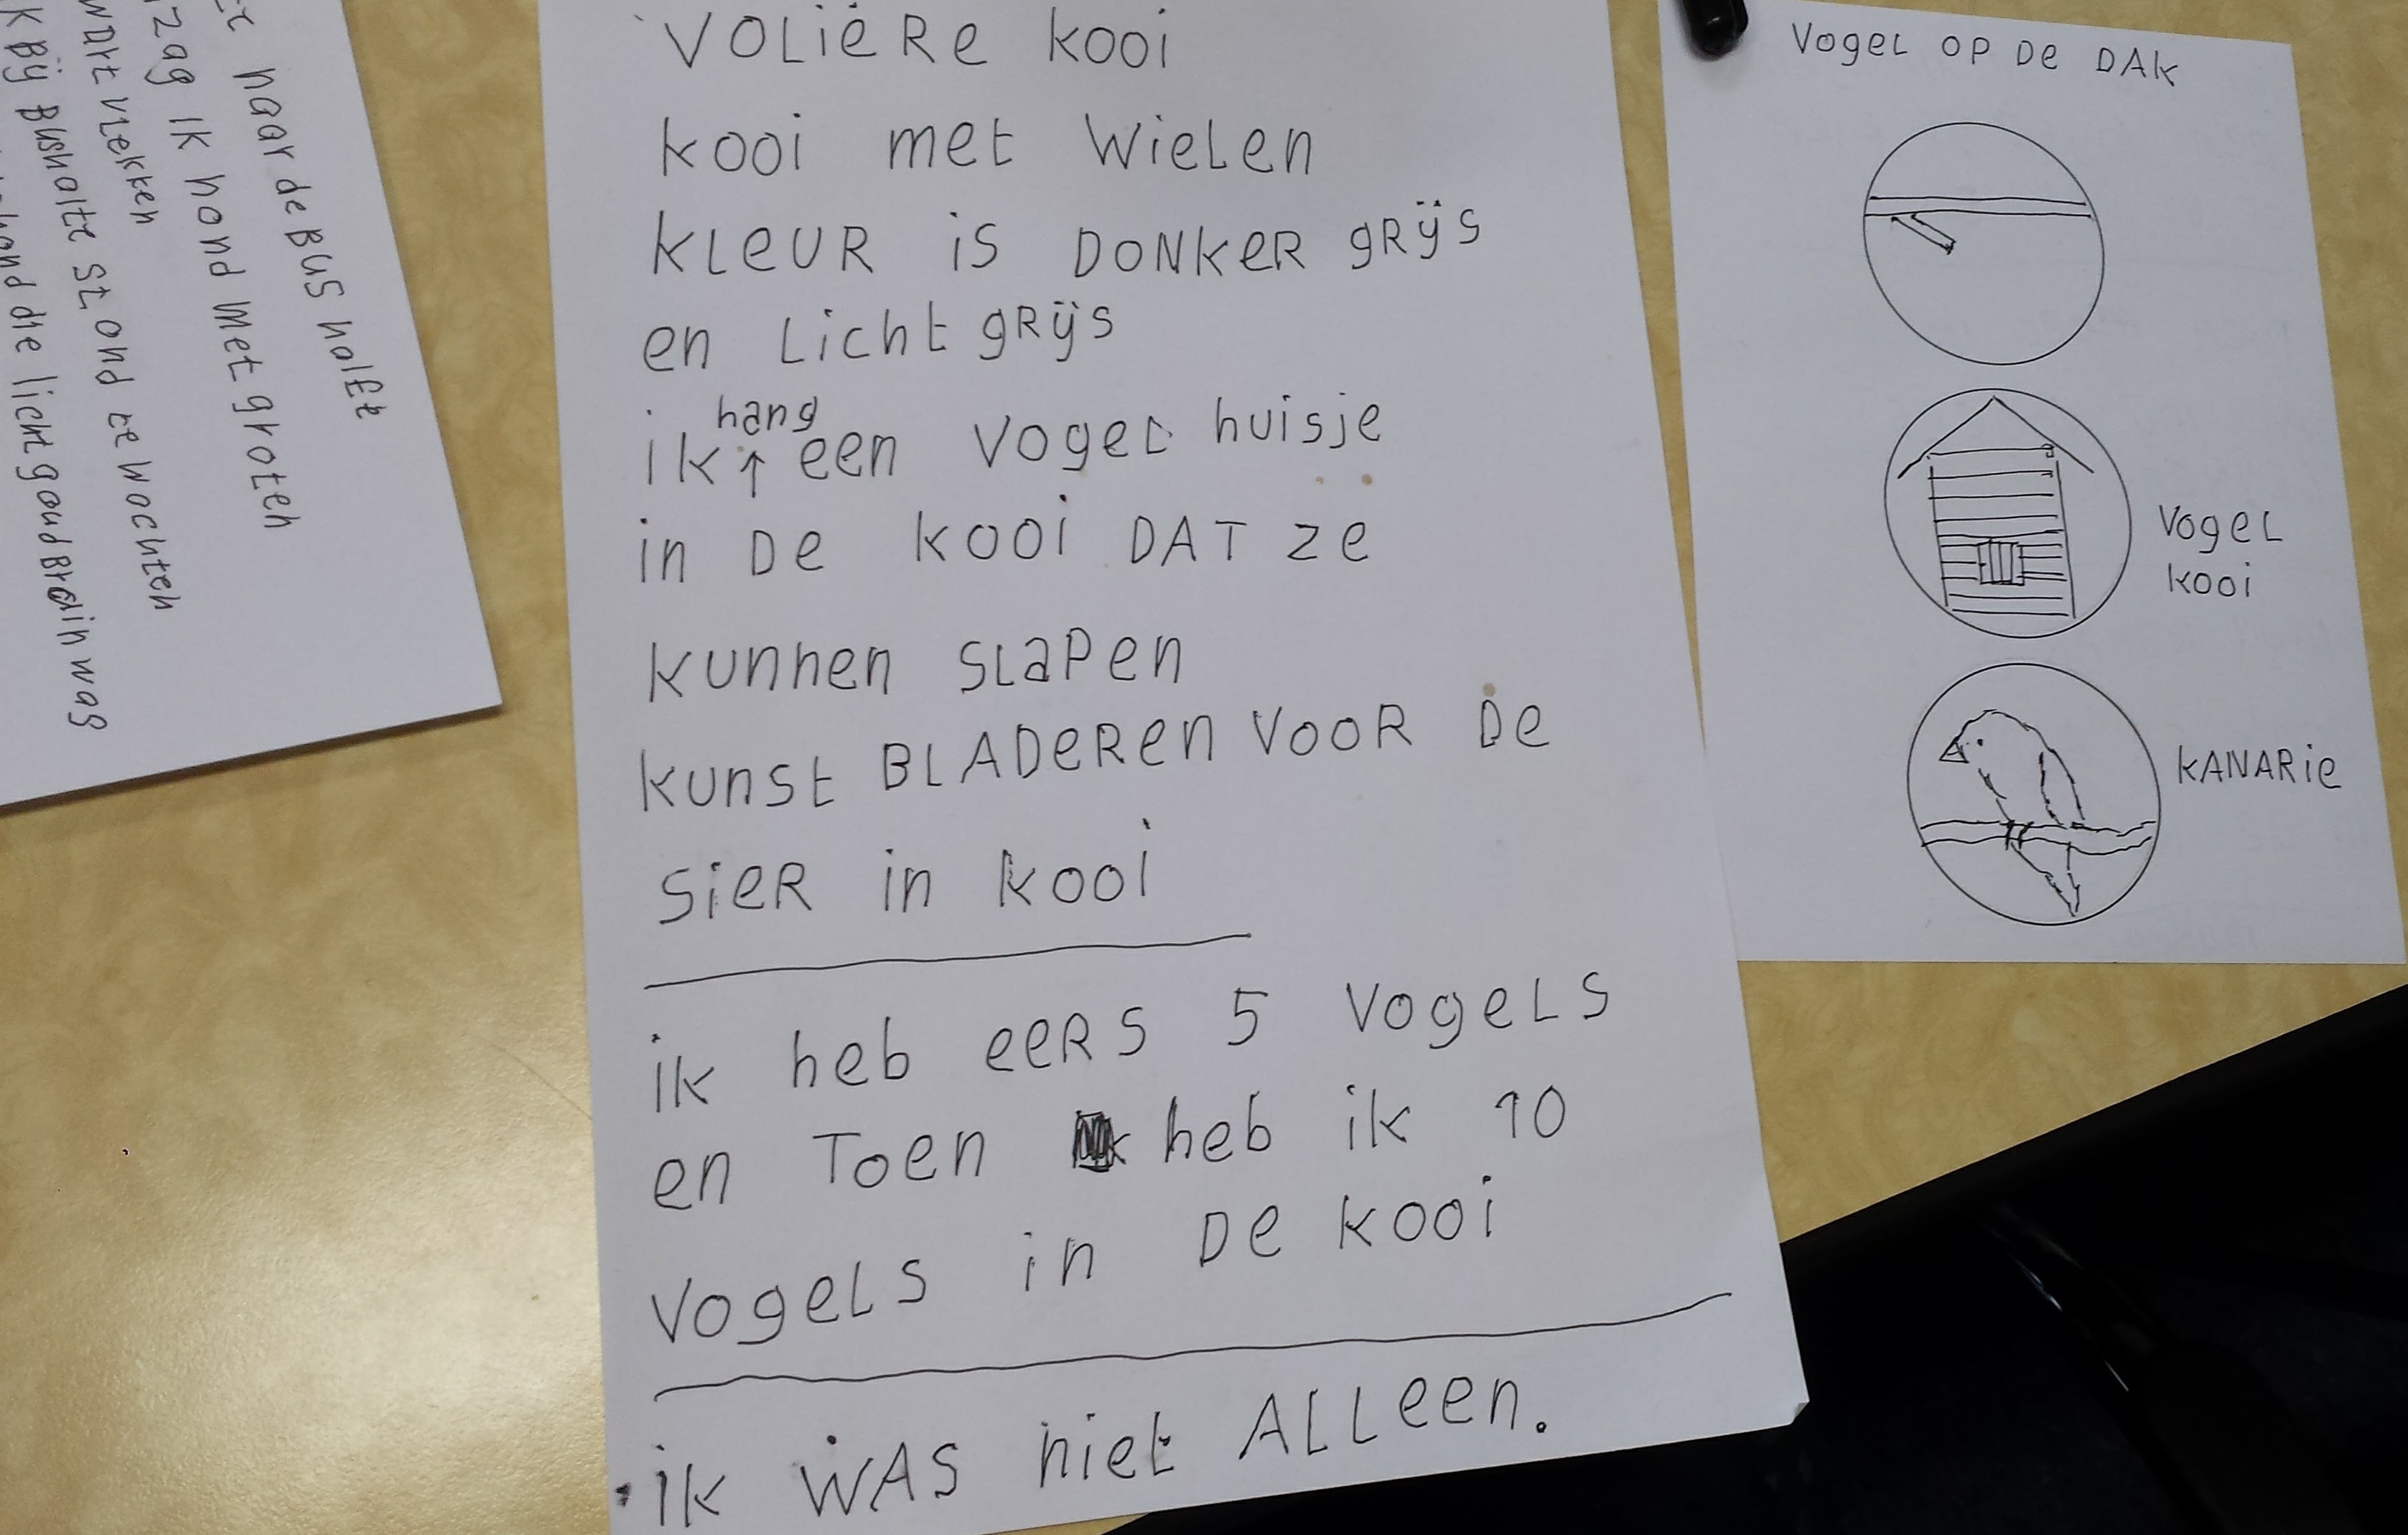 naar de Bus holft
zag ik hond met groten
wart vlekken
k Bij Bushalte stond te wachten
hond die licht goud Brain was
VOLiéRe kooi
kooi met WieLen
KLeUR iS DONKeR gRijS
en Licht gRijs
ik hang een VogeL huisje
in De kooi DAT ze
kunnen SLaPen
kunst BLADeRen VOOR De
SieR in kooi
ik heb eeRS 5 VogeLS
en Toen heb ik 10
VogeLS in De kooi
ik WAS niet ALLeen.
VogeL OP De DAk
VogeL
kooi
KANARie